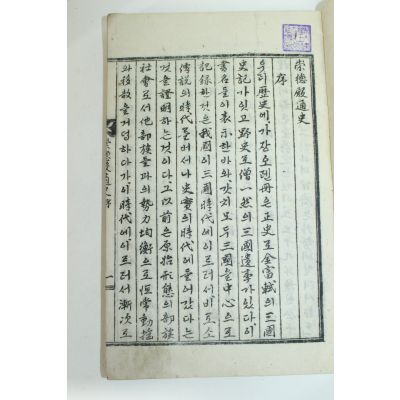 崇德殿通史
序
우리歷史에가장오랜冊은正史로金富軾의三國
史記가잇고野史로僧一然의三國遺事가잇다이
書名들이表示한바와갓치모두三國을中心으로
記錄한것은我國이三國時代에이르러서비로소
傳說의時代를버서나史實의時代에들어갔다는
것을證明하는것이다그以前은原始形態의部族
社會로서他部族들과의勢力均衡으로恒常動搖
와移散을거덥하다가이時代에이르러서漸次로
崇德殿通史序
一